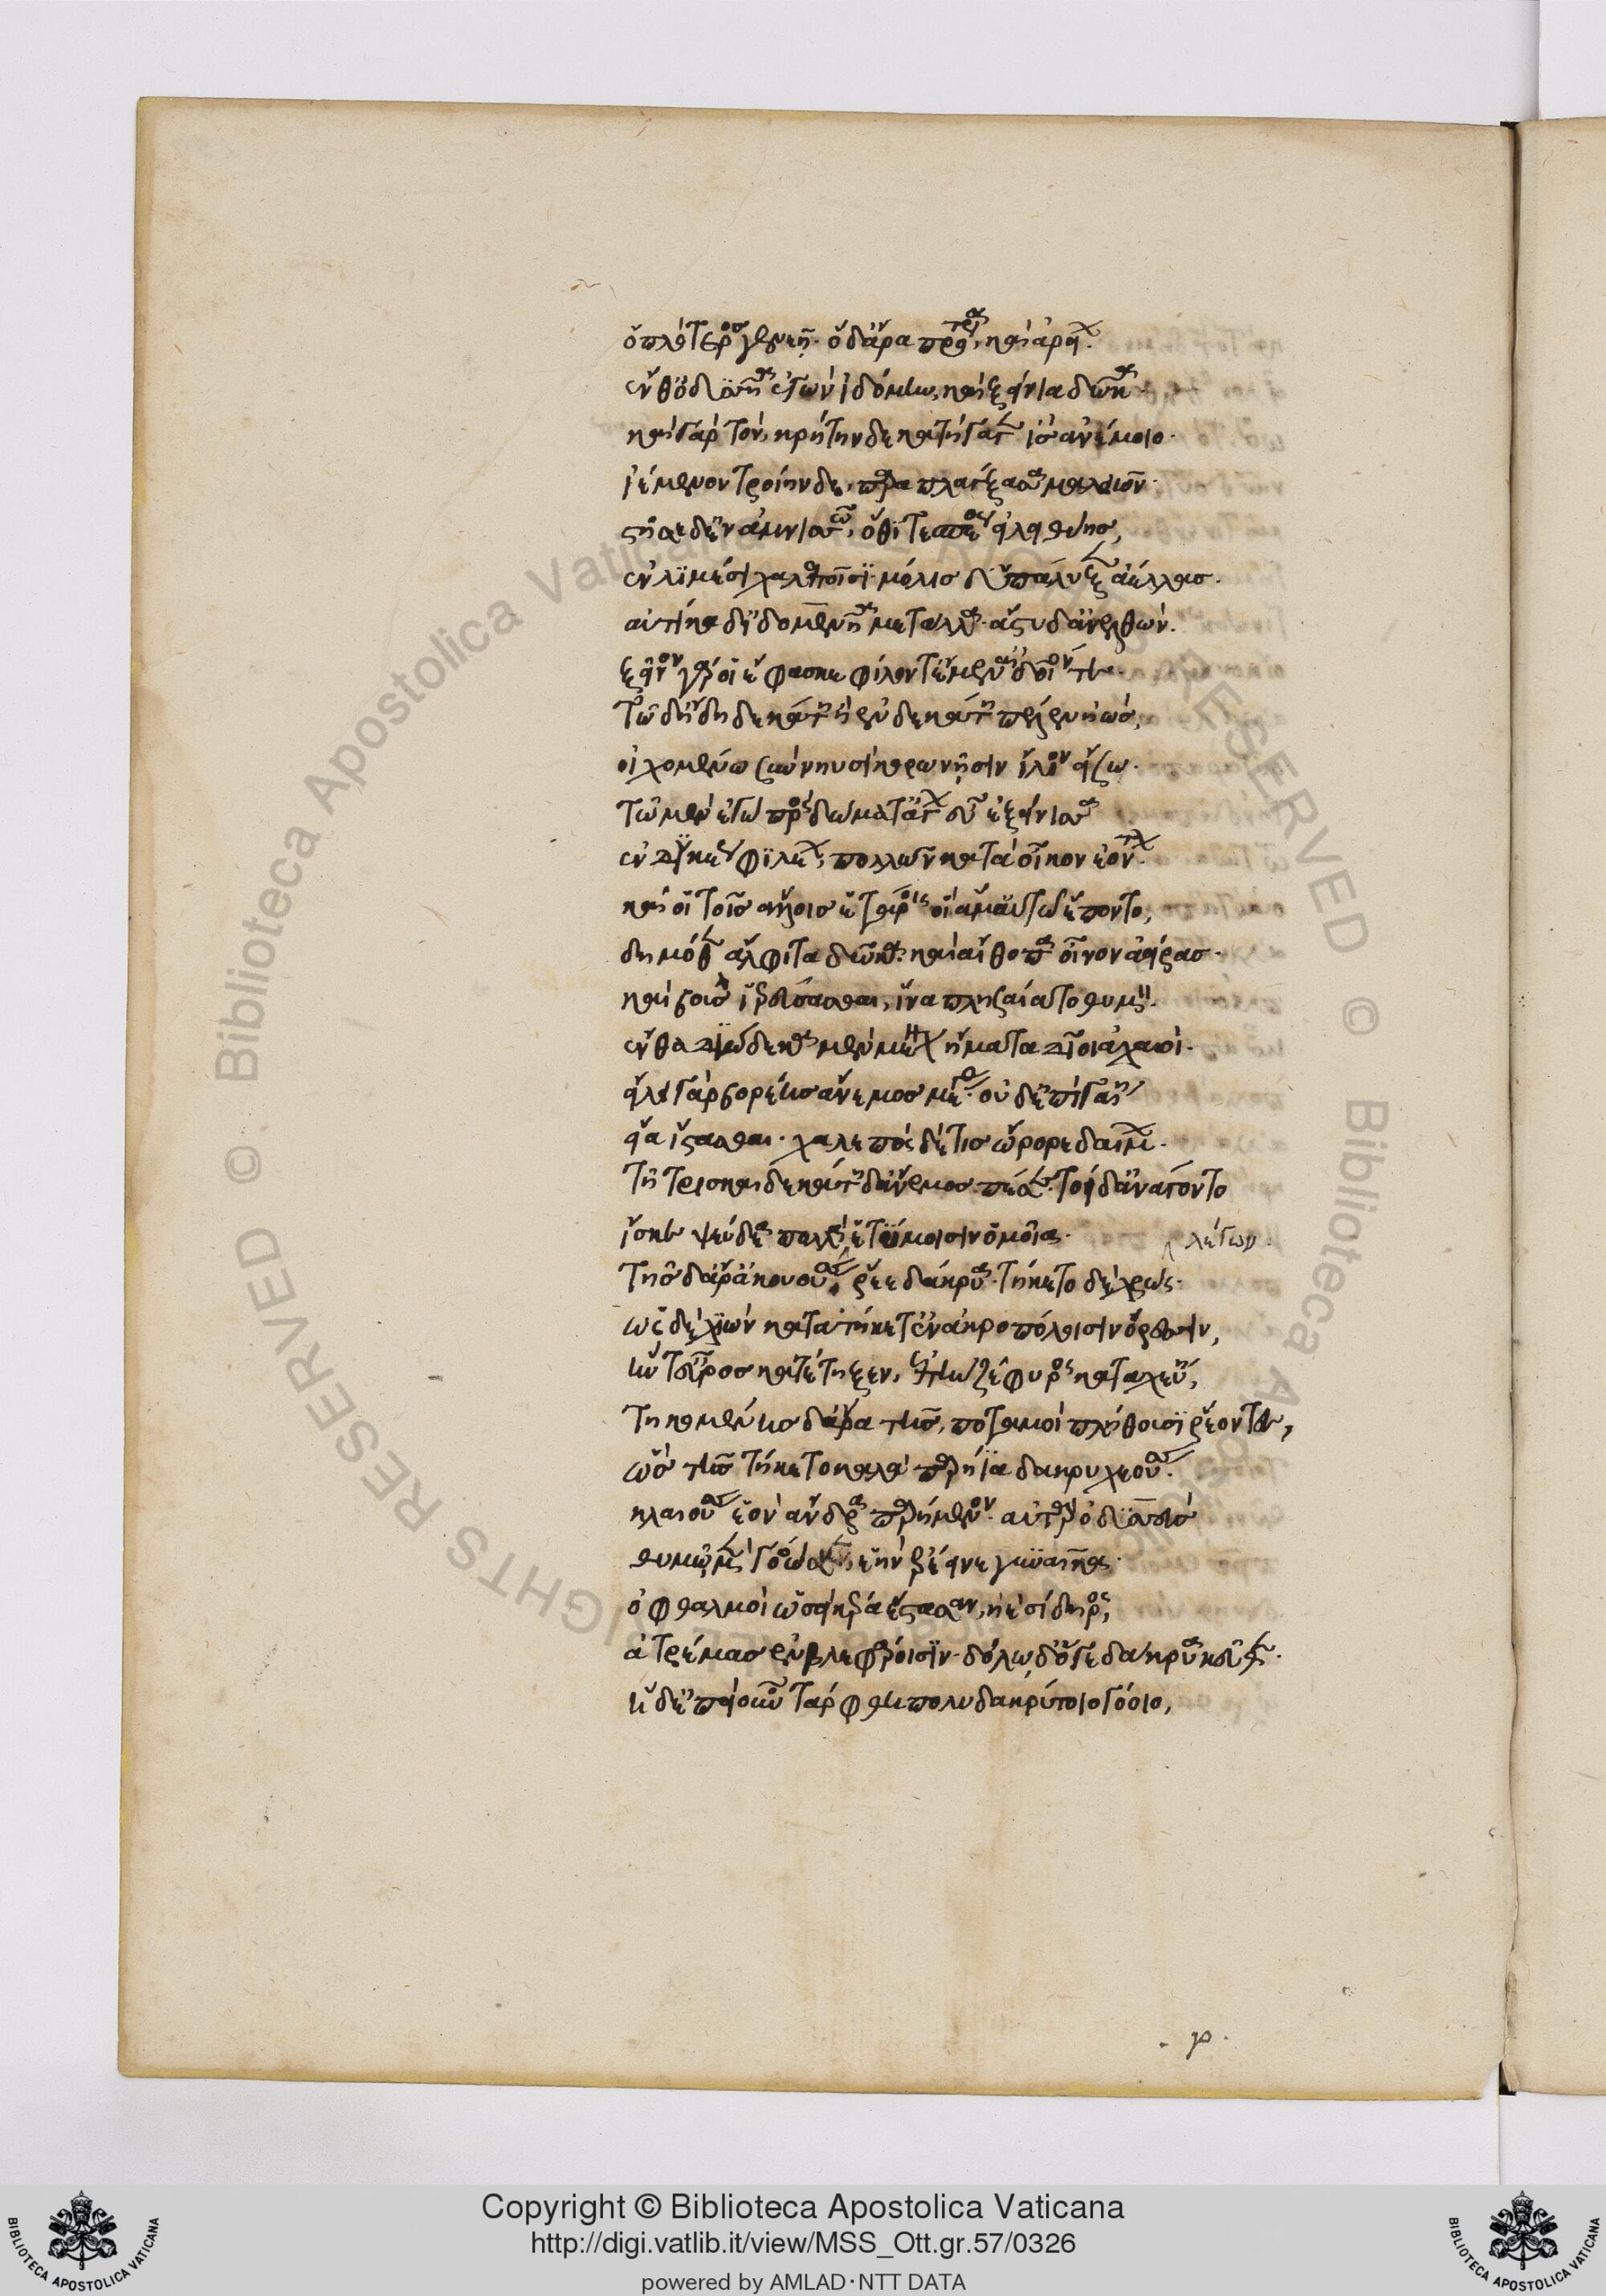 ὁπλότερος γενεῆ· ὁ δ' ἄρα πρότερος καὶ ἀρείων.
ἔνθ' ὀδυσῆα ἐγὼν ἰδόμην, καὶ ξείνια δῶκα.
καὶ γὰρ τὸν κρήτηνδε κατήγαγεν ἲς ἀνέμοιο.
ἱέμενον τροίηνδε, παραπλάγξασα μαλειῶν.
στῆσε δ' ἐν ἀμνισῶ, ὅθι τε σπέος εἰλειθυίης,
ἐν λιμέσι χαλεποῖσι· μόλις δ' ὑπάλυξεν ἀέλλας.
αὐτίκα δ' ἰδομενῆα μετάλλα· ἄστυ δ' ἀνελθών.
ξεῖνον γάρ οἱ ἔφασκε φίλον τ' ἔμεν αἰδοῖόν τε.
τῶ δ' ἤδη δεκάτη ἢ ἑνδεκάτη πέλεν ἠὼς,
οἰχομένω σὺν νηυσὶ κορωνῆσιν ἴλιον εἴσω.
τὸν μὲν ἐγὼ πρὸς δώματ' ἄγων εὖ ἐξείνισα
ἐνδυκέως φιλέων, πολλῶν κατὰ οἶκον ἐόντων.
καὶ οἱ τοῖς ἄλλοις ἑτάροις οἳ ἅμ' αὐτῶ ἕποντο,
δημόθεν ἄλφιτα δῶκα· καὶ αἴθοπα οἶνον ἀγείρας.
καὶ βοῦς ἱρεύσασθαι, ἵνα πλησαίατο θυμόν.
ἔνθα δυώδεκα μὲν μένον ἤματα δῖοι ἀχαιοί.
εἴλει γὰρ βορέης ἄνεμος μέγας· οὐδ' ἐπὶ γαίη
εἴα ἵστασθαι· χαλεπὸς δέ τις ὤρορε δαίμων.
τῆ τρισκαιδεκάτη δ' ἄνεμος πέσε· τοὶ δ' ἀνάγοντο
ἴσκε ψεύδεα πολλὰ ἐτύμοισιν ὁμοῖα. λέγων.
τῆς δ' ἄρ' ἀκουούσης ῥέε δάκρυα· τήκετο δὲ χρώς.
ὡς δὲ χιὼν κατατήκετ' ἐν ἀκροπόλοισιν ὄρεσσιν,
ἥν τ' εὖρος κατέτηξεν, ἐπὴν ζέφυρος καταχεύη,
τηκομένης δ' ἄρα τῆς, ποταμοὶ πλήθουσι ῥέοντες,
ὣς τῆς τήκετο καλὰ παρήϊα δακρυχεούσης.
κλαιούσης ἑὸν ἄνδρα παρήμενον. αὐτὰρ ὀδυσσεὺς
θυμῶ μὲν γοόωσαν ἑὴν ἐλέαιρε γυναῖκα.
ὀφθαλμοὶ ὡσεὶ κέρα ἕστασαν, ἠὲ σίδηρος,
ἀτρέμας ἐν βλεφάροισιν· δόλω δ' ὅ γε δάκρυα κεῦθεν.
ἡ δ' ἐπεὶ οὖν τάρφθη πολυδακρύτοιο γόοιο,
Copyright © Biblioteca Apostolica Vaticana
http://digi.vatlib.it/view/MSS_Ott.gr.57/0326
powered by AMLAD·NTT DATA